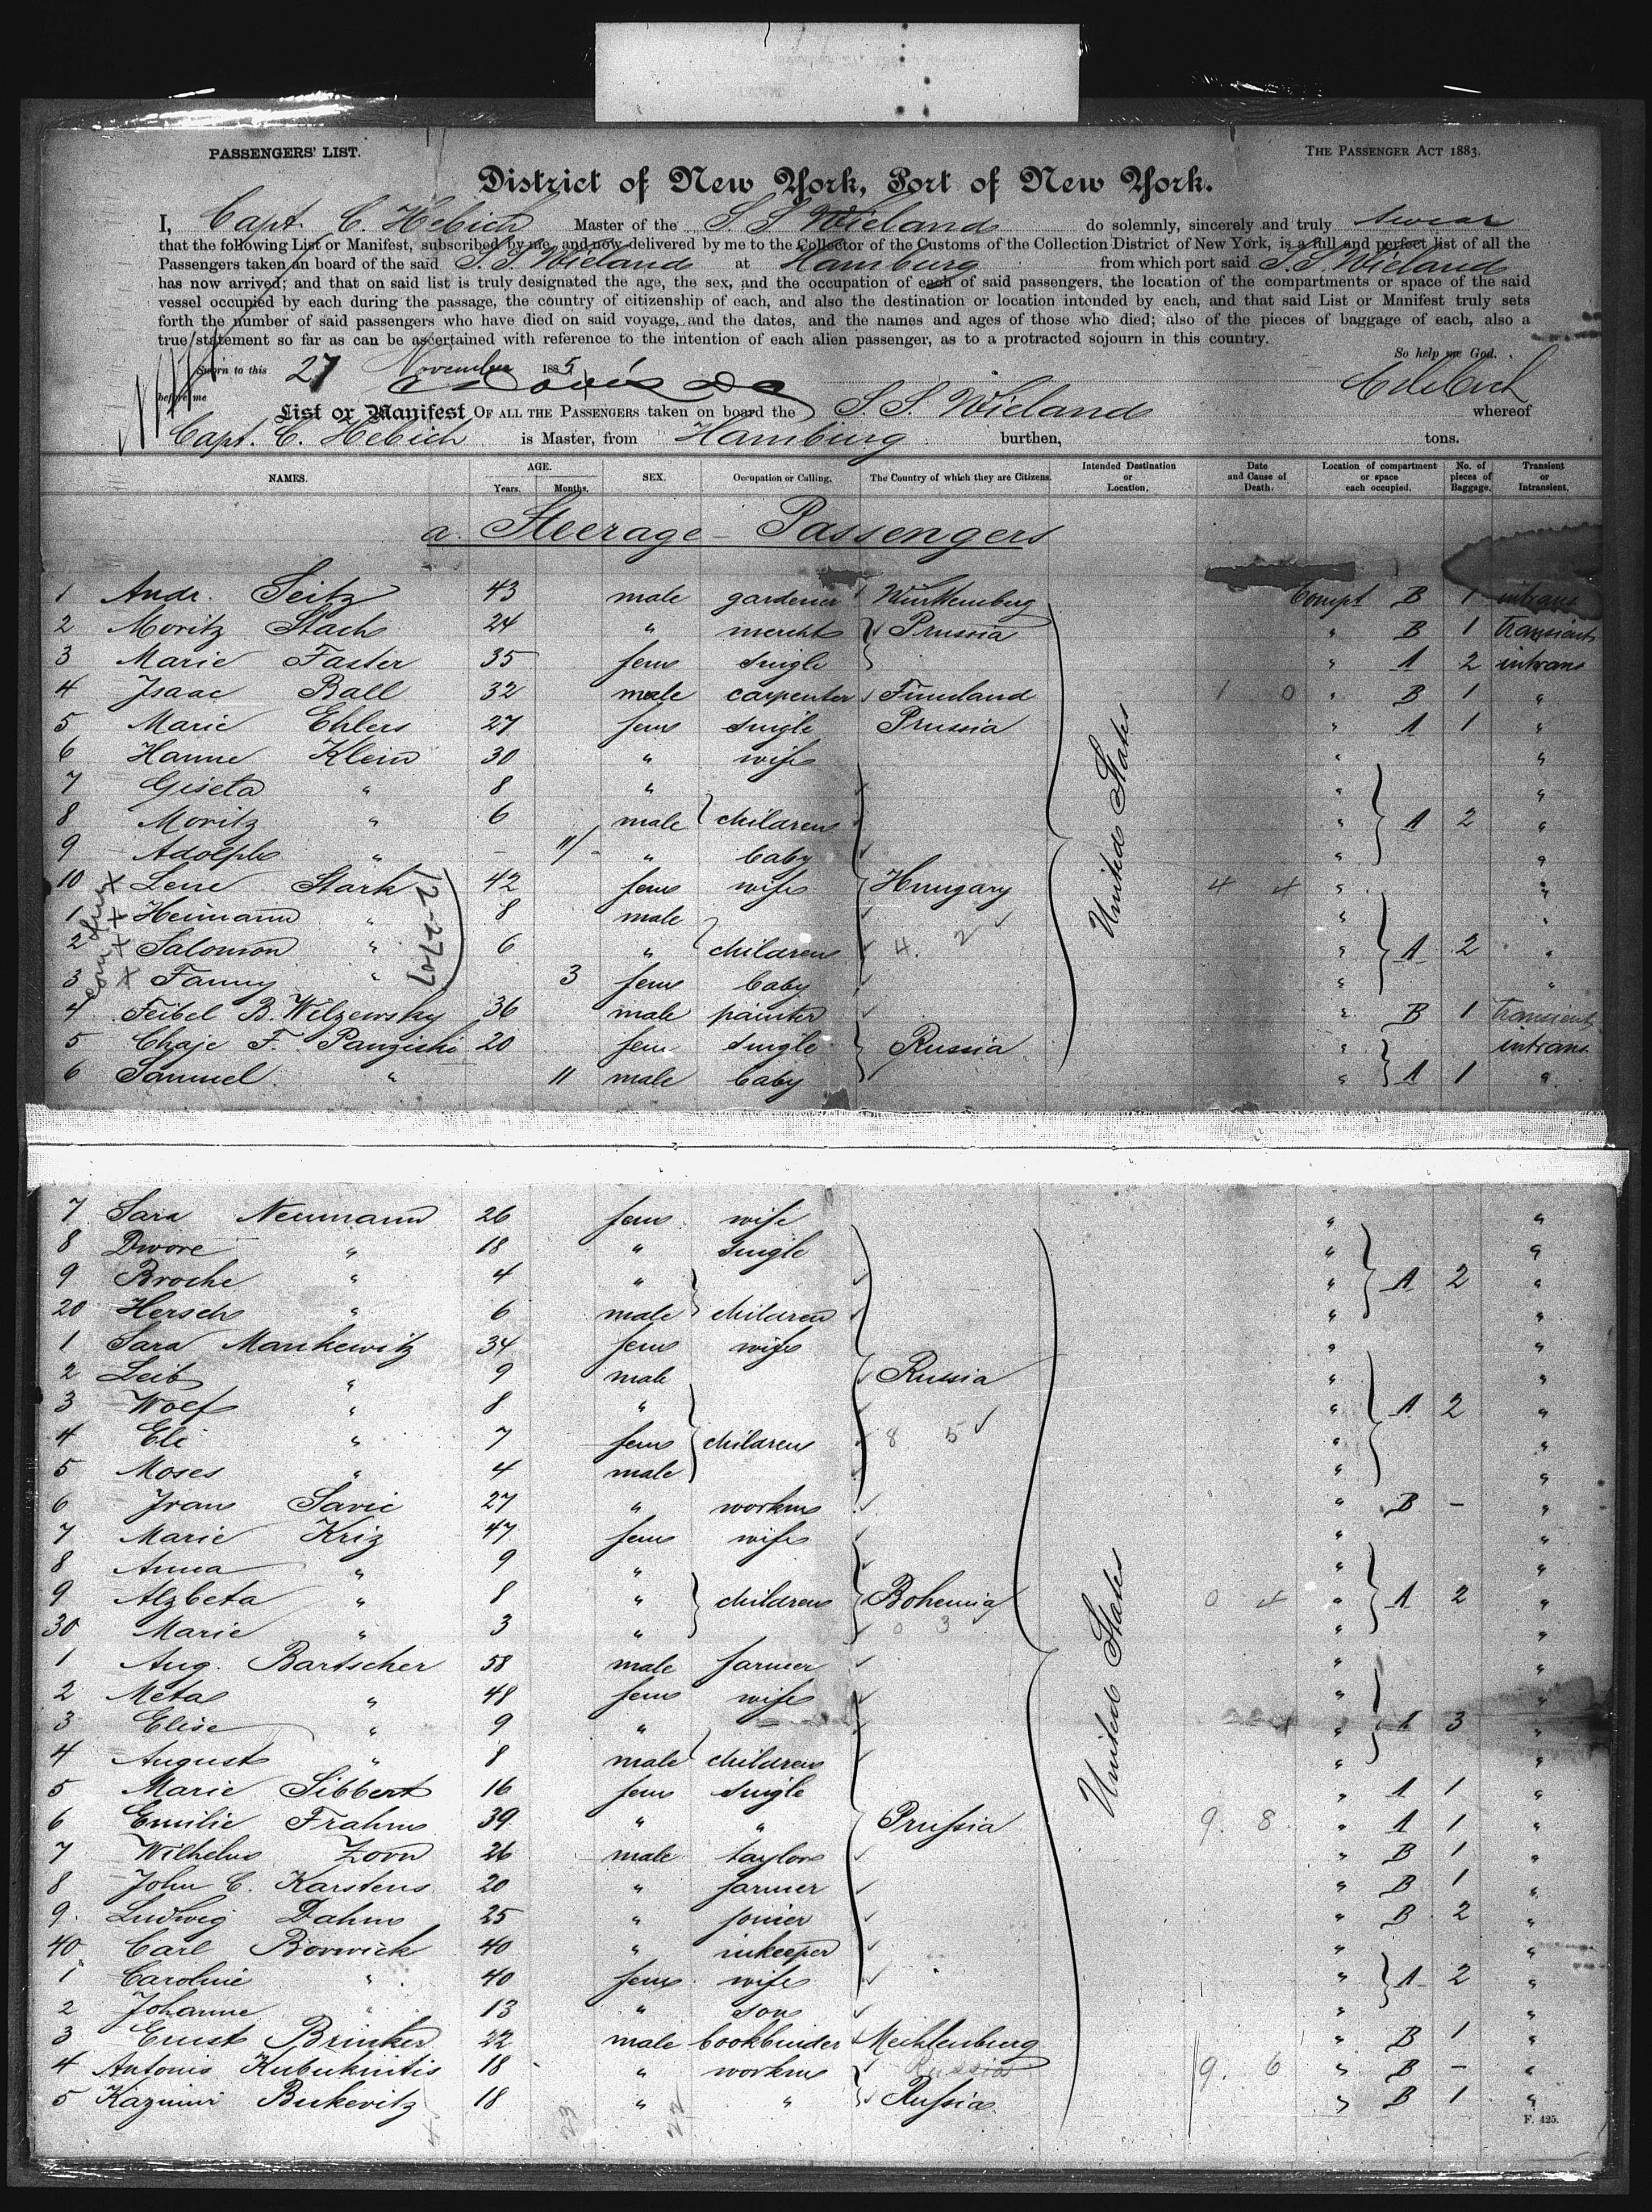 PASSENGERS' LIST.
THE PASSENGER ACT 1883.
District of New York, Port of New York.
I, Capt. C. Hebich Master of the S. S. Wieland do solemnly, sincerely and truly swear
that the following List or Manifest, subscribed by me, and now delivered by me to the Collector of the Customs of the Collection District of New York, is a full and perfect list of all the
Passengers taken an board of the said S. S. Wieland at Hamburg from which port said S. S. Wieland
has now arrived; and that on said list is truly designated the age, the sex, and the occupation of each of said passengers, the location of the compartments or space of the said
vessel occupied by each during the passage, the country of citizenship of each, and also the destination or location intended by each, and that said List or Manifest truly sets
forth the number of said passengers who have died on said voyage, and the dates, and the names and ages of those who died; also of the pieces of baggage of each, also a
true statement so far as can be ascertained with reference to the intention of each alien passenger, as to a protracted sojourn in this country.
So help me God.
Sworn to this 27 November 1885
before me
C Hebich
List or Manifest OF ALL THE PASSENGERS taken on board the S. S. Wieland whereof
Capt. C. Hebich is Master, from Hamburg burthen, tons.
NAMES. AGE. Years. Months. SEX. Occupation or Calling. The Country of which they are Citizens. Intended Destination or Location. Date and Cause of Death. Location of compartment or space each occupied. No. of pieces of Baggage. Transient or Intransient.
a. Steerage - Passengers
1 Andr. Seitz 43 male gardener Württemberg Compt B 1 intrans
2 Moritz Stach 24 " mercht Prussia " B 1 transient
3 Marie Faster 35 fem single " A 2 intrans
4 Isaac Ball 32 male carpenter Finnland 1 0 " B 1 "
5 Marie Ehlers 27 fem single Prussia " A 1 "
6 Hanne Klein 30 " wife " "
7 Giseta " 8 " " "
8 Moritz " 6 male children " A 2 "
9 Adolph " - 11/- " baby " "
10 Lene Stark 42 fem wife Hungary 4 4 " "
1 Heimann " 8 male " "
2 Salomon " 6 " children 4. 2 " A 2 "
3 Fanny " 3 fem baby " "
12-2707
4 Feibel B. Wilzewsky 36 male painter " B 1 transient
5 Chaje F. Panzishi 20 fem single Russia " intrans
6 Samuel " 11 male baby " A 1 "
United States
7 Sara Neumann 26 fem wife " "
8 Dwore " 18 " single " "
9 Broche " 4 " " A 2 "
20 Hersch " 6 male children " "
1 Sara Mankewitz 34 fem wife " "
2 Leib " 9 male Russia " "
3 Wolf " 8 " " A 2 "
4 Eli " 7 fem children 8 5 " "
5 Moses " 4 male " "
6 Ivan Savic 27 " workm " B - "
7 Marie Kriz 47 fem wife " "
8 Anna " 9 " " "
9 Alzbeta " 8 " children Bohemia 0 4 " A 2 "
30 Marie " 3 " 0 3 " "
1 Aug. Bartscher 58 male farmer " "
2 Meta " 48 fem wife " "
3 Elise " 9 " " A 3 "
4 August " 8 male children " "
5 Marie Sibbert 16 fem single " A 1 "
6 Emilie Frahm 39 " " Prussia 9. 8. " A 1 "
7 Wilhelm Zorn 26 male taylor " B 1 "
8 John C. Karstens 20 " farmer " B 1 "
9. Ludwig Dahm 25 " joiner " B 2 "
40 Carl Borwick 40 " inkeeper " "
1 Caroline " 40 fem wife " A 2 "
2 Johanne " 13 " son " "
3 Ernst Brinker 22 male bookbinder Mecklenburg " B 1 "
4 Antonis Kubuknitis 18 " workm Russia 9. 6 " B - "
5 Kazimir Bukevitz 18 " " Russia " B 1 "
United States
23 22
F. 425.